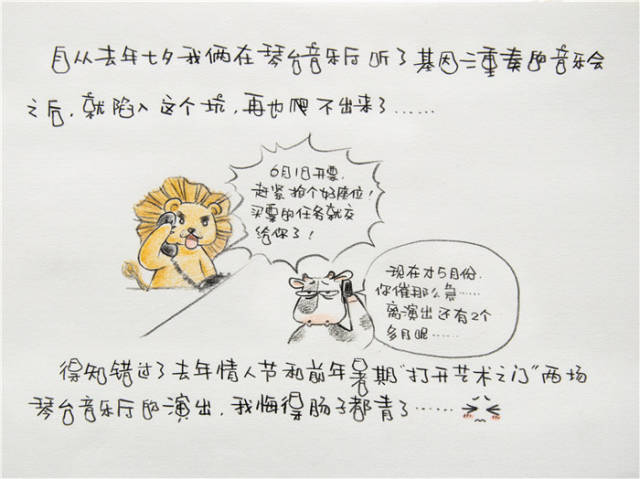 自从去年七夕我俩在琴台音乐厅听了基因二重奏的音乐会
之后，就陷入这个坑，再也爬不出来了……
6月1日开票，
赶紧抢个好座位！
买票的任务就交
给你了！
现在才5月份，
你催那么急……
离演出还有2个
多月呢……
得知错过了去年情人节和前年暑期“打开艺术之门”两场
琴台音乐厅的演出，我悔得肠子都青了……